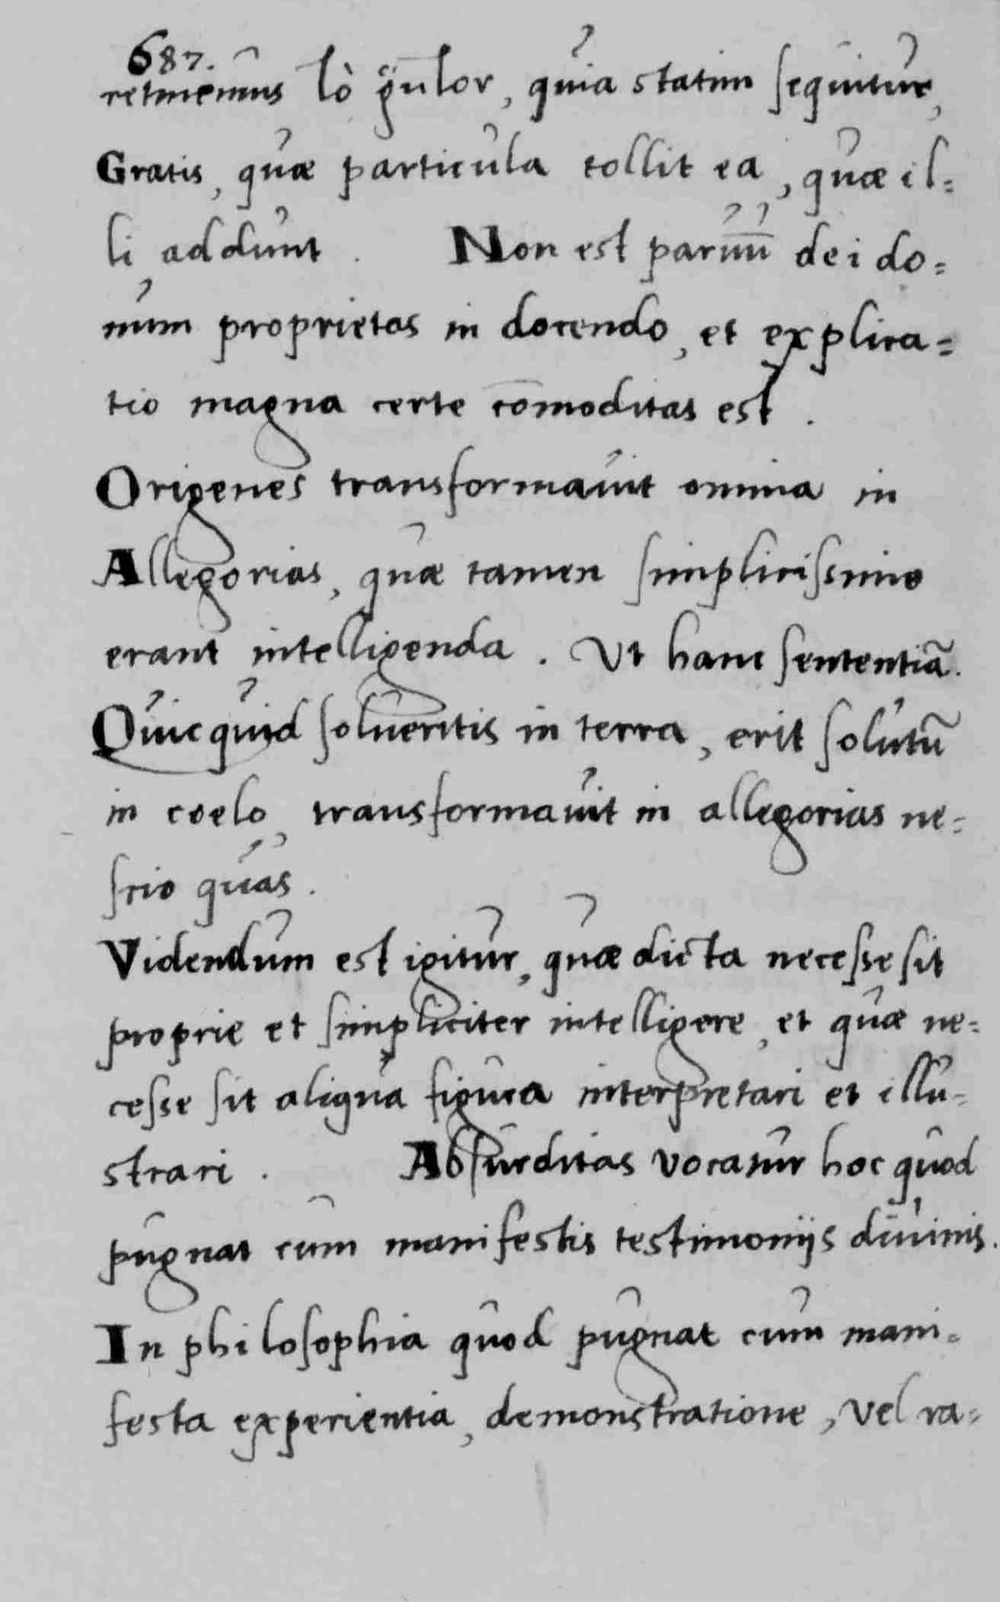 687.
retinemus quia statim sequitur,
Gratis, quæ particula tollit ea, quæ il=
li addunt. Non est paruū dei do=
num proprietas in docendo, et explica=
tio magna certe cōmoditas est.
Origenes transformauit omnia in
Allegorias, quæ tamen simplicissime
erant intelligenda. Ut hanc sententiā.
Quicquid solueritis in terra, erit solutū
in coelo, transformauit in allegorias ne=
scio quas.
Videndum est igitur, quæ dicta necesse sit
proprie et simpliciter intelligere, et quæ ne=
cesse sit aliqua figura interpretari et illu=
strari. Absurditas vocatur hoc quod
pugnat cum manifestis testimonijs diuinis.
In philosophia quod pugnat cum mani=
festa experientia, demonstratione, vel ra=